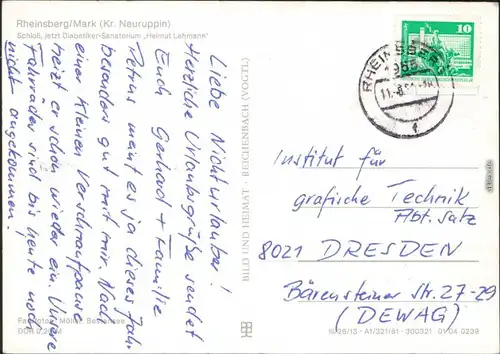 Rheinsberg/Mark (Kr. Neuruppin)
Schloß, jetzt Diabetiker-Sanatorium „Helmut Lehmann“
Liebe Nichturlauber!
Herzliche Urlaubsgrüße sendet
Euch Gerhard + Familie
Petrus meint es ja dieses Jahr
besonders gut mit mir. Nach
einer kleinen Verschnaufpause
heizt er schon wieder ein. Unsere
Fahrräder sind bis heute noch
nicht angekommen!
BILD UND HEIMAT · REICHENBACH (VOGTL)
10
RHEINSBE
Institut für
grafische Technik
Abt. Satz
8021 DRESDEN
Bärensteiner Str. 27-29
(DEWAG)
DDR 0,20 M
A1/321/81 300321 01 04 0239